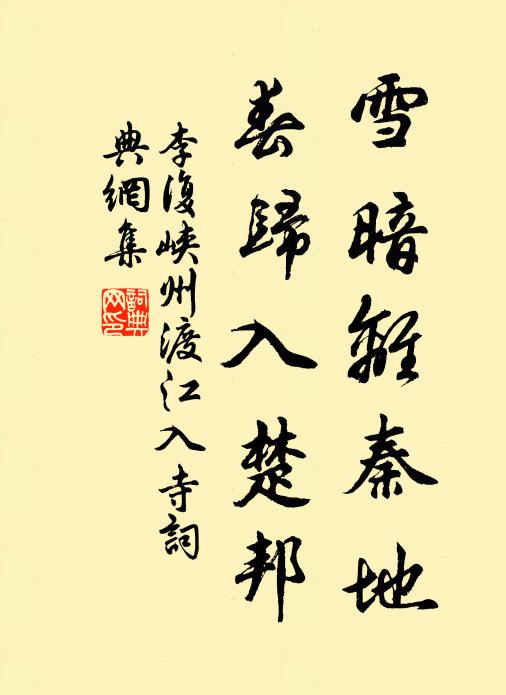 雪暗離秦地
春歸入楚邦
李復峽州渡江入寺詞
典網集
詞典
网印